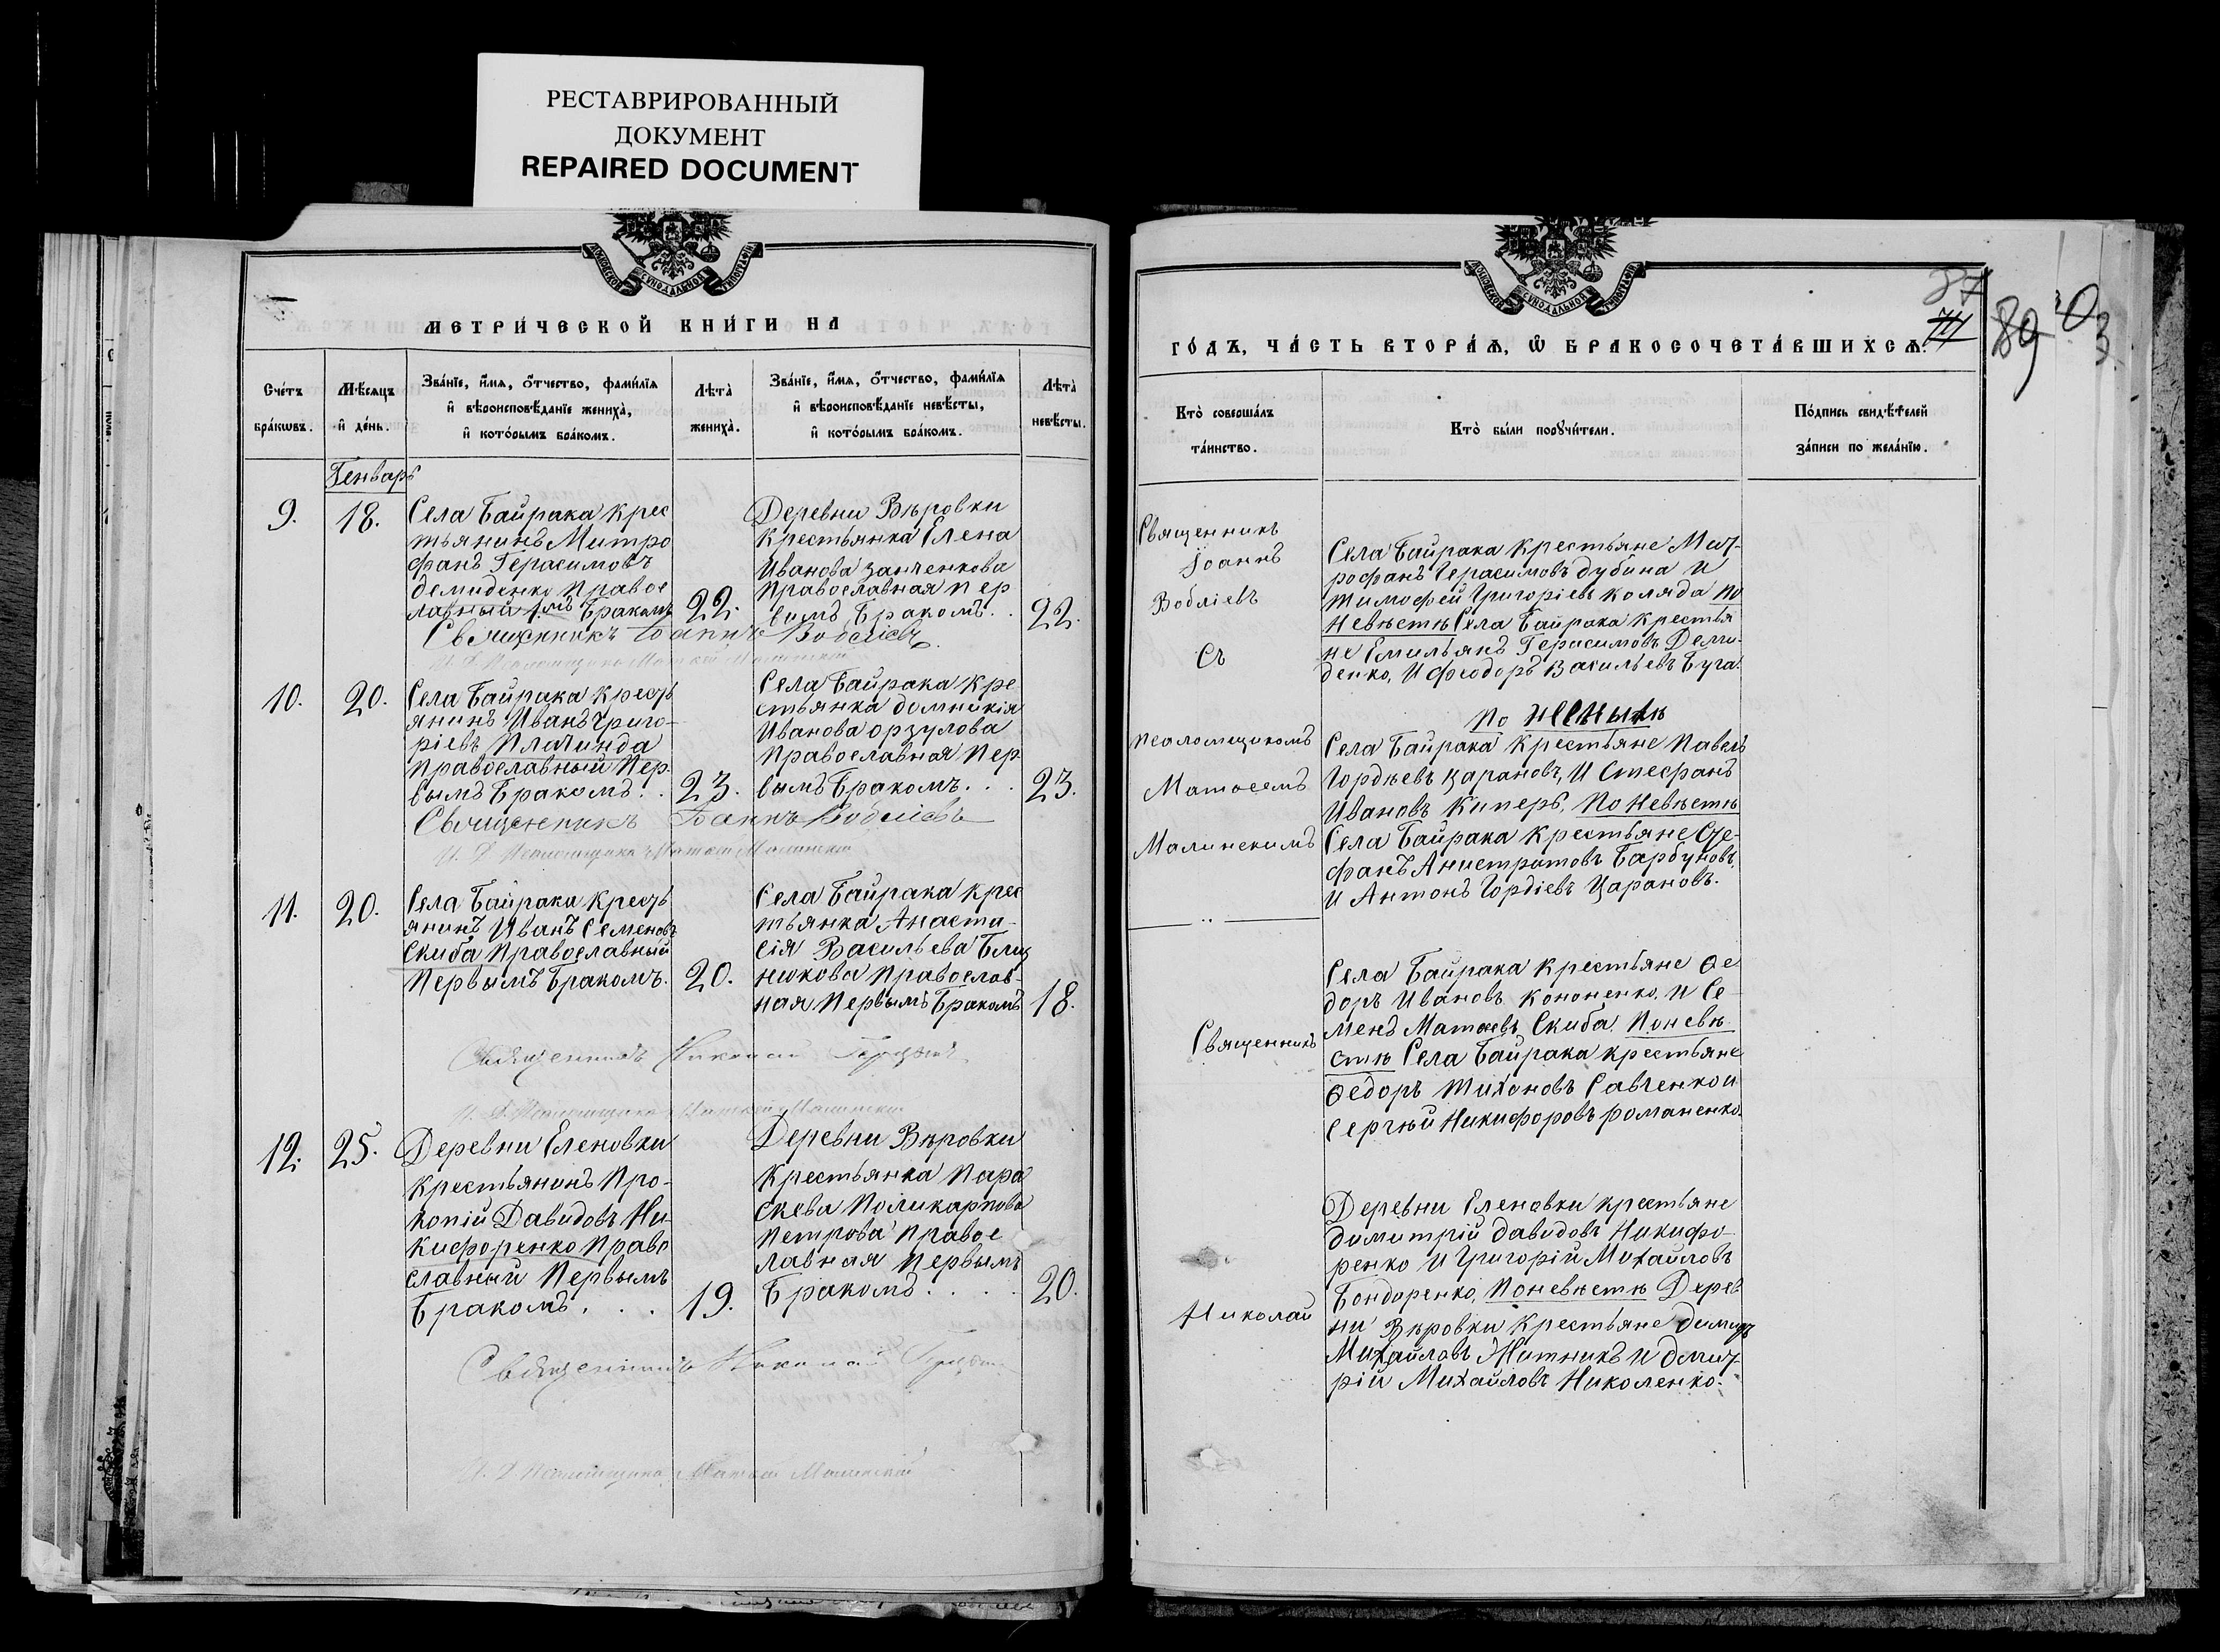 РЕСТАВРИРОВАННЫЙ
ДОКУМЕНТ
REPAIRED DOCUMENT
МОСКОВСКОЙ СѴНОДАЛЬНОЙ ТИПОГРАФІИ
МЕТРИ́ЧЕСКОЙ КНИ́ГИ НА
Сче́тъ
бра́кѡвъ.
Мѣ́сяцъ
и҆ де́нь.
Зва́нїе, и҆́мѧ, ѻ҆́тчество, фами́лїѧ
и҆ вѣроисповѣ́данїе жениха̀,
и҆ кото́рымъ бра́комъ.
Лѣта̀
жениха̀.
Зва́нїе, и҆́мѧ, ѻ҆́тчество, фами́лїѧ
и҆ вѣроисповѣ́данїе невѣ́сты,
и҆ кото́рымъ бра́комъ.
Лѣта̀
невѣ́сты.
Генварь
9.
18.
Села Байрака крес
тьянинъ Митро
фанъ Герасимовъ
Демиденко правос
лавный 1.мъ Бракомъ
22.
Деревни Вѣровки
крестьянка Елена
Иванова Занченкова
Православная пер
вымъ Бракомъ..
22.
Священникъ Іоаннъ Воблїевъ
И. Д. Псаломщика Матѳей Малинскій
10.
20.
Села Байрака кресть
янинъ Иванъ Григо-
ріевъ Плачинда
православный Пер-
вымъ Бракомъ..
23.
Села Байрака кре
стьянка Домникія
Иванова Орзулова
Православная Пер
вымъ Бракомъ...
23.
Священникъ Іоаннъ Воблїевъ
И. Д. Псаломщика Матѳей Малинскій
11.
20.
Села Байрака кресть
янинъ Иванъ Семеновъ
Скиба Православный
Первымъ Бракомъ.
20.
Села Байрака крес
тьянка Анаста-
сія Васильева Близ
нюкова Православ-
ная Первымъ Бракомъ
18.
Священникъ Николай
И. Д. Псаломщика Матѳей Малинскій
12.
25.
Деревни Еленовки
крестьянинъ Про-
копій Давидовъ Ни-
кифоренко Право
славный Первымъ
Бракомъ...
19.
Деревни Вѣровки
крестьянка Пара
скева Поликарпова
Петрова Правос
лавная Первымъ
Бракомъ....
20.
Священникъ Николай
И. Д. Псаломщика Матѳей Малинскій
МОСКОВСКОЙ СѴНОДАЛЬНОЙ ТИПОГРАФІИ
37
89
ГО́ДЪ, ЧА́СТЬ ВТОРА́Ѧ, Ѽ БРАКОСОЧЕТА́ВШИХСѦ.
Кто̀ соверша́лъ
та́инство.
Кто̀ бы́ли порꙋчи́тели.
По́дпись свидѣ́телей
за́писи по жела́нїю.
Священникъ
Іоаннъ
Воблїевъ
Съ
псаломщикомъ
Матѳеемъ
Малинскимъ
Священникъ
Николай
Села Байрака крестьяне Мит-
рофанъ Герасимовъ Дубина и
Тимофей Григоріевъ Коляда по
Невѣстѣ Села Байрака крестья
не Емильянъ Герасимовъ Деми-
денко, И Феодоръ Васильевъ Буга.
По
Села Байрака Крестьяне Павелъ
Гордѣевъ Царановъ, И Стефанъ
Ивановъ Киперь, По Невѣстѣ
Села Байрака Крестьяне Сте-
фанъ Анистратовъ Барбуновъ,
И Антонъ Гордіевъ Царановъ.
Села Байрака Крестьяне Ѳе
доръ Ивановъ Кононенко, и Се-
менъ Матѳеевъ Скиба. По невѣ
стѣ Села Байрака крестьяне
Ѳедоръ Тихоновъ Савченко и
Сергѣй Никифоровъ Романенко.
Деревни Еленовки крестьяне
Димитрій Давидовъ Никифо-
ренко И Григорій Михайловъ
Бондоренко, По невѣстѣ Дерев
ни Вѣровки Крестьяне
Михайловъ Житникъ И Дмит-
рій Михайловъ Николенко.